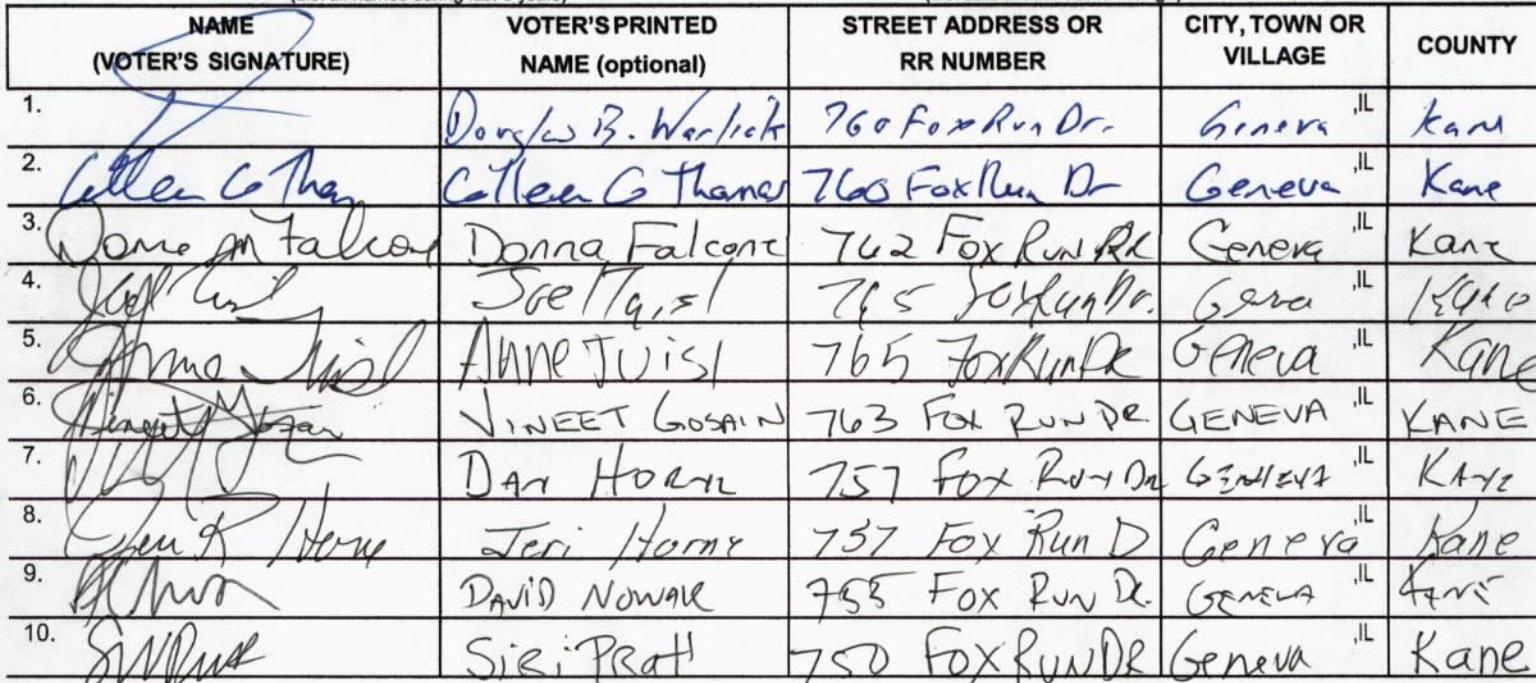 NAME (VOTER'S SIGNATURE) VOTER'S PRINTED NAME (optional) STREET ADDRESS OR RR NUMBER CITY, TOWN OR VILLAGE COUNTY
1. Douglas B. Warlick 760 Fox Run Dr. Geneva ,IL Kane
2. Colleen G Thomas 760 Fox Run Dr Geneva ,IL Kane
3. Donna M Falcone Donna Falcone 762 Fox Run DR Geneva ,IL Kane
4. Joel 765 Fox Run Dr. ,IL
5. Anne 765 Fox Run Dr Geneva ,IL Kane
6. VINEET GOSAIN 763 FOX RUN DR GENEVA ,IL KANE
7. DAN HORNE 757 FOX RUN DR GENEVA ,IL KANE
8. Jeri R Horne Jeri Horne 757 Fox Run D Geneva ,IL Kane
9. DAVID NOWAK 755 FOX RUN DR. GENEVA ,IL KANE
10. SiRi PRatt 750 FOX RUN DR Geneva ,IL Kane